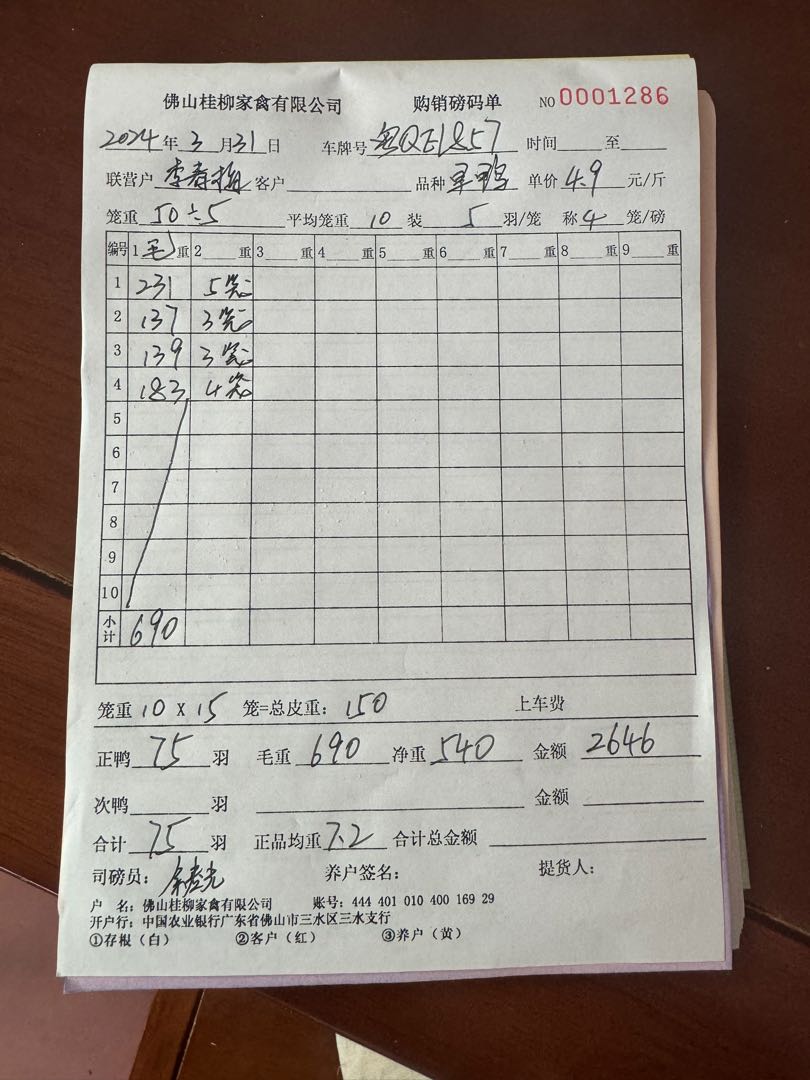 佛山桂柳家禽有限公司 购销磅码单 NO 0001286
2024年3月31日 车牌号 粤QE1857 时间 至
联营户 李春梅 客户 品种 单价 4.9 元/斤
笼重 50÷5 平均笼重 10 装 5 羽/笼 称 4 笼/磅
编号 1 毛 重 2 重 3 重 4 重 5 重 6 重 7 重 8 重 9 重
1 231 5笼
2 137 3笼
3 139 3笼
4 183 4笼
5
6
7
8
9
10
小计 690
笼重 10 X 15 笼=总皮重: 150 上车费
正鸭 75 羽 毛重 690 净重 540 金额 2646
次鸭 羽 金额
合计 75 羽 正品均重 7.2 合计总金额
司磅员: 养户签名: 提货人:
户 名: 佛山桂柳家禽有限公司 账号: 444 401 010 400 169 29
开户行: 中国农业银行广东省佛山市三水区三水支行
①存根(白) ②客户(红) ③养户(黄)